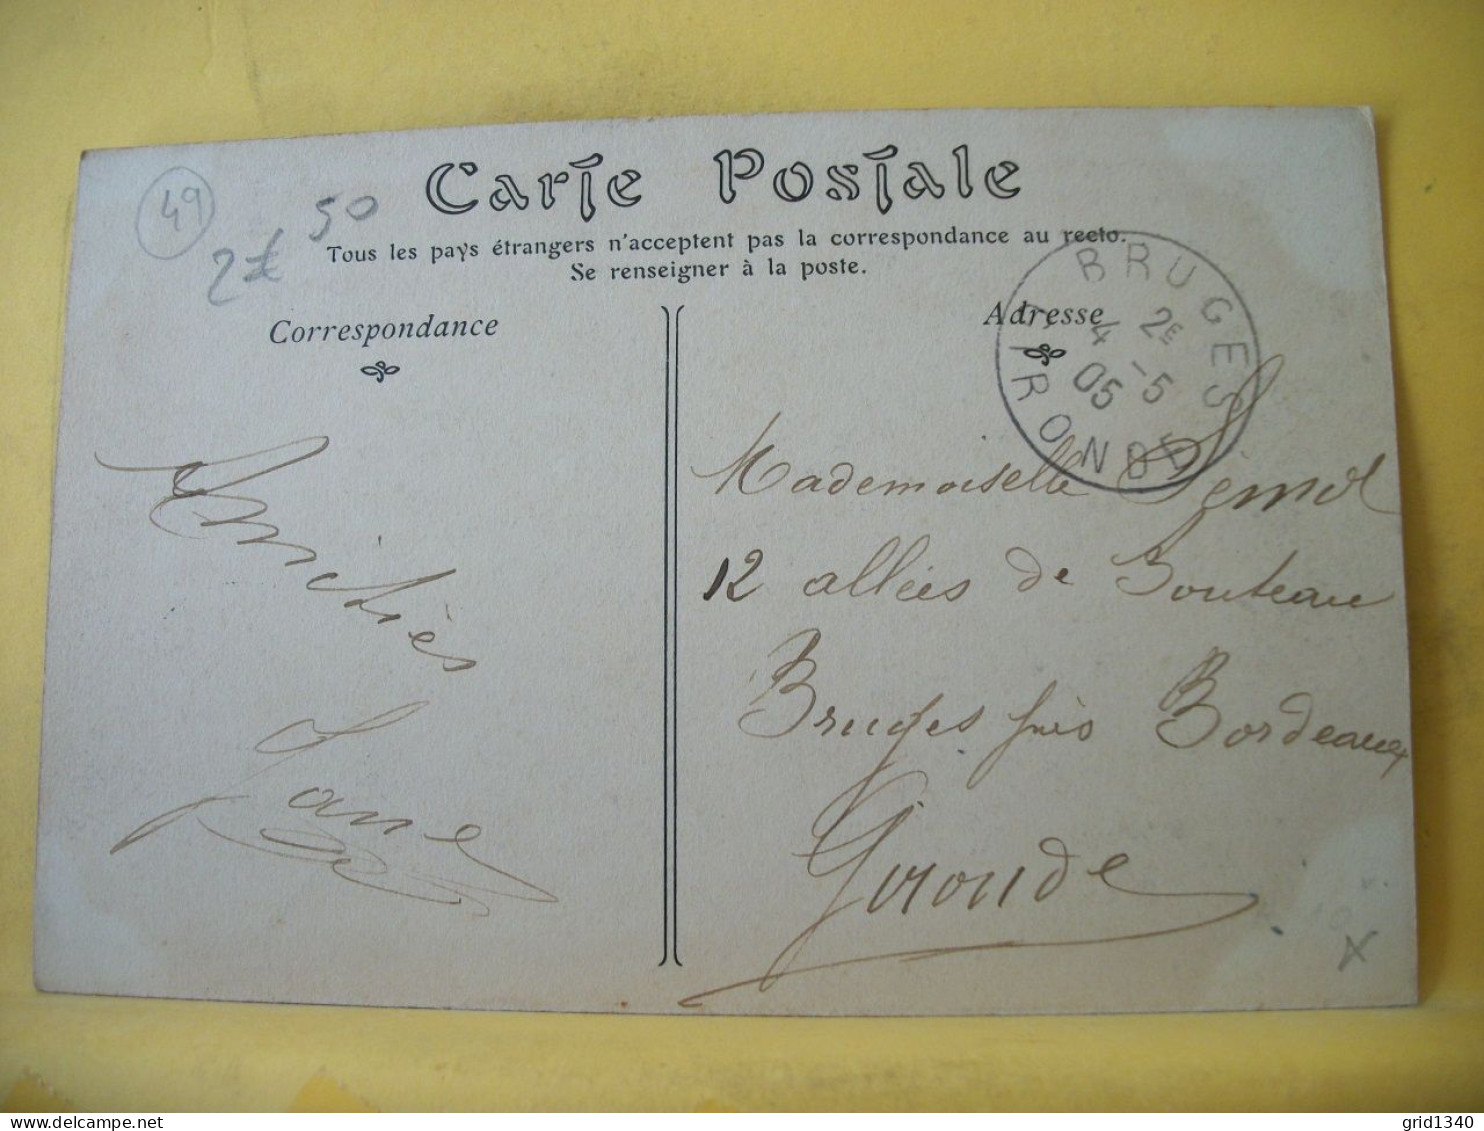 49
2€ 50
Carte Postale
Tous les pays étrangers n'acceptent pas la correspondance au recto.
Se renseigner à la poste.
Correspondance
Adresse
BRUGES
2E
4 -5
05
GIRONDE
Amitiés
Jane
Mademoiselle
12 allées de Bouteau
Bruges près Bordeaux
Gironde
grid1340